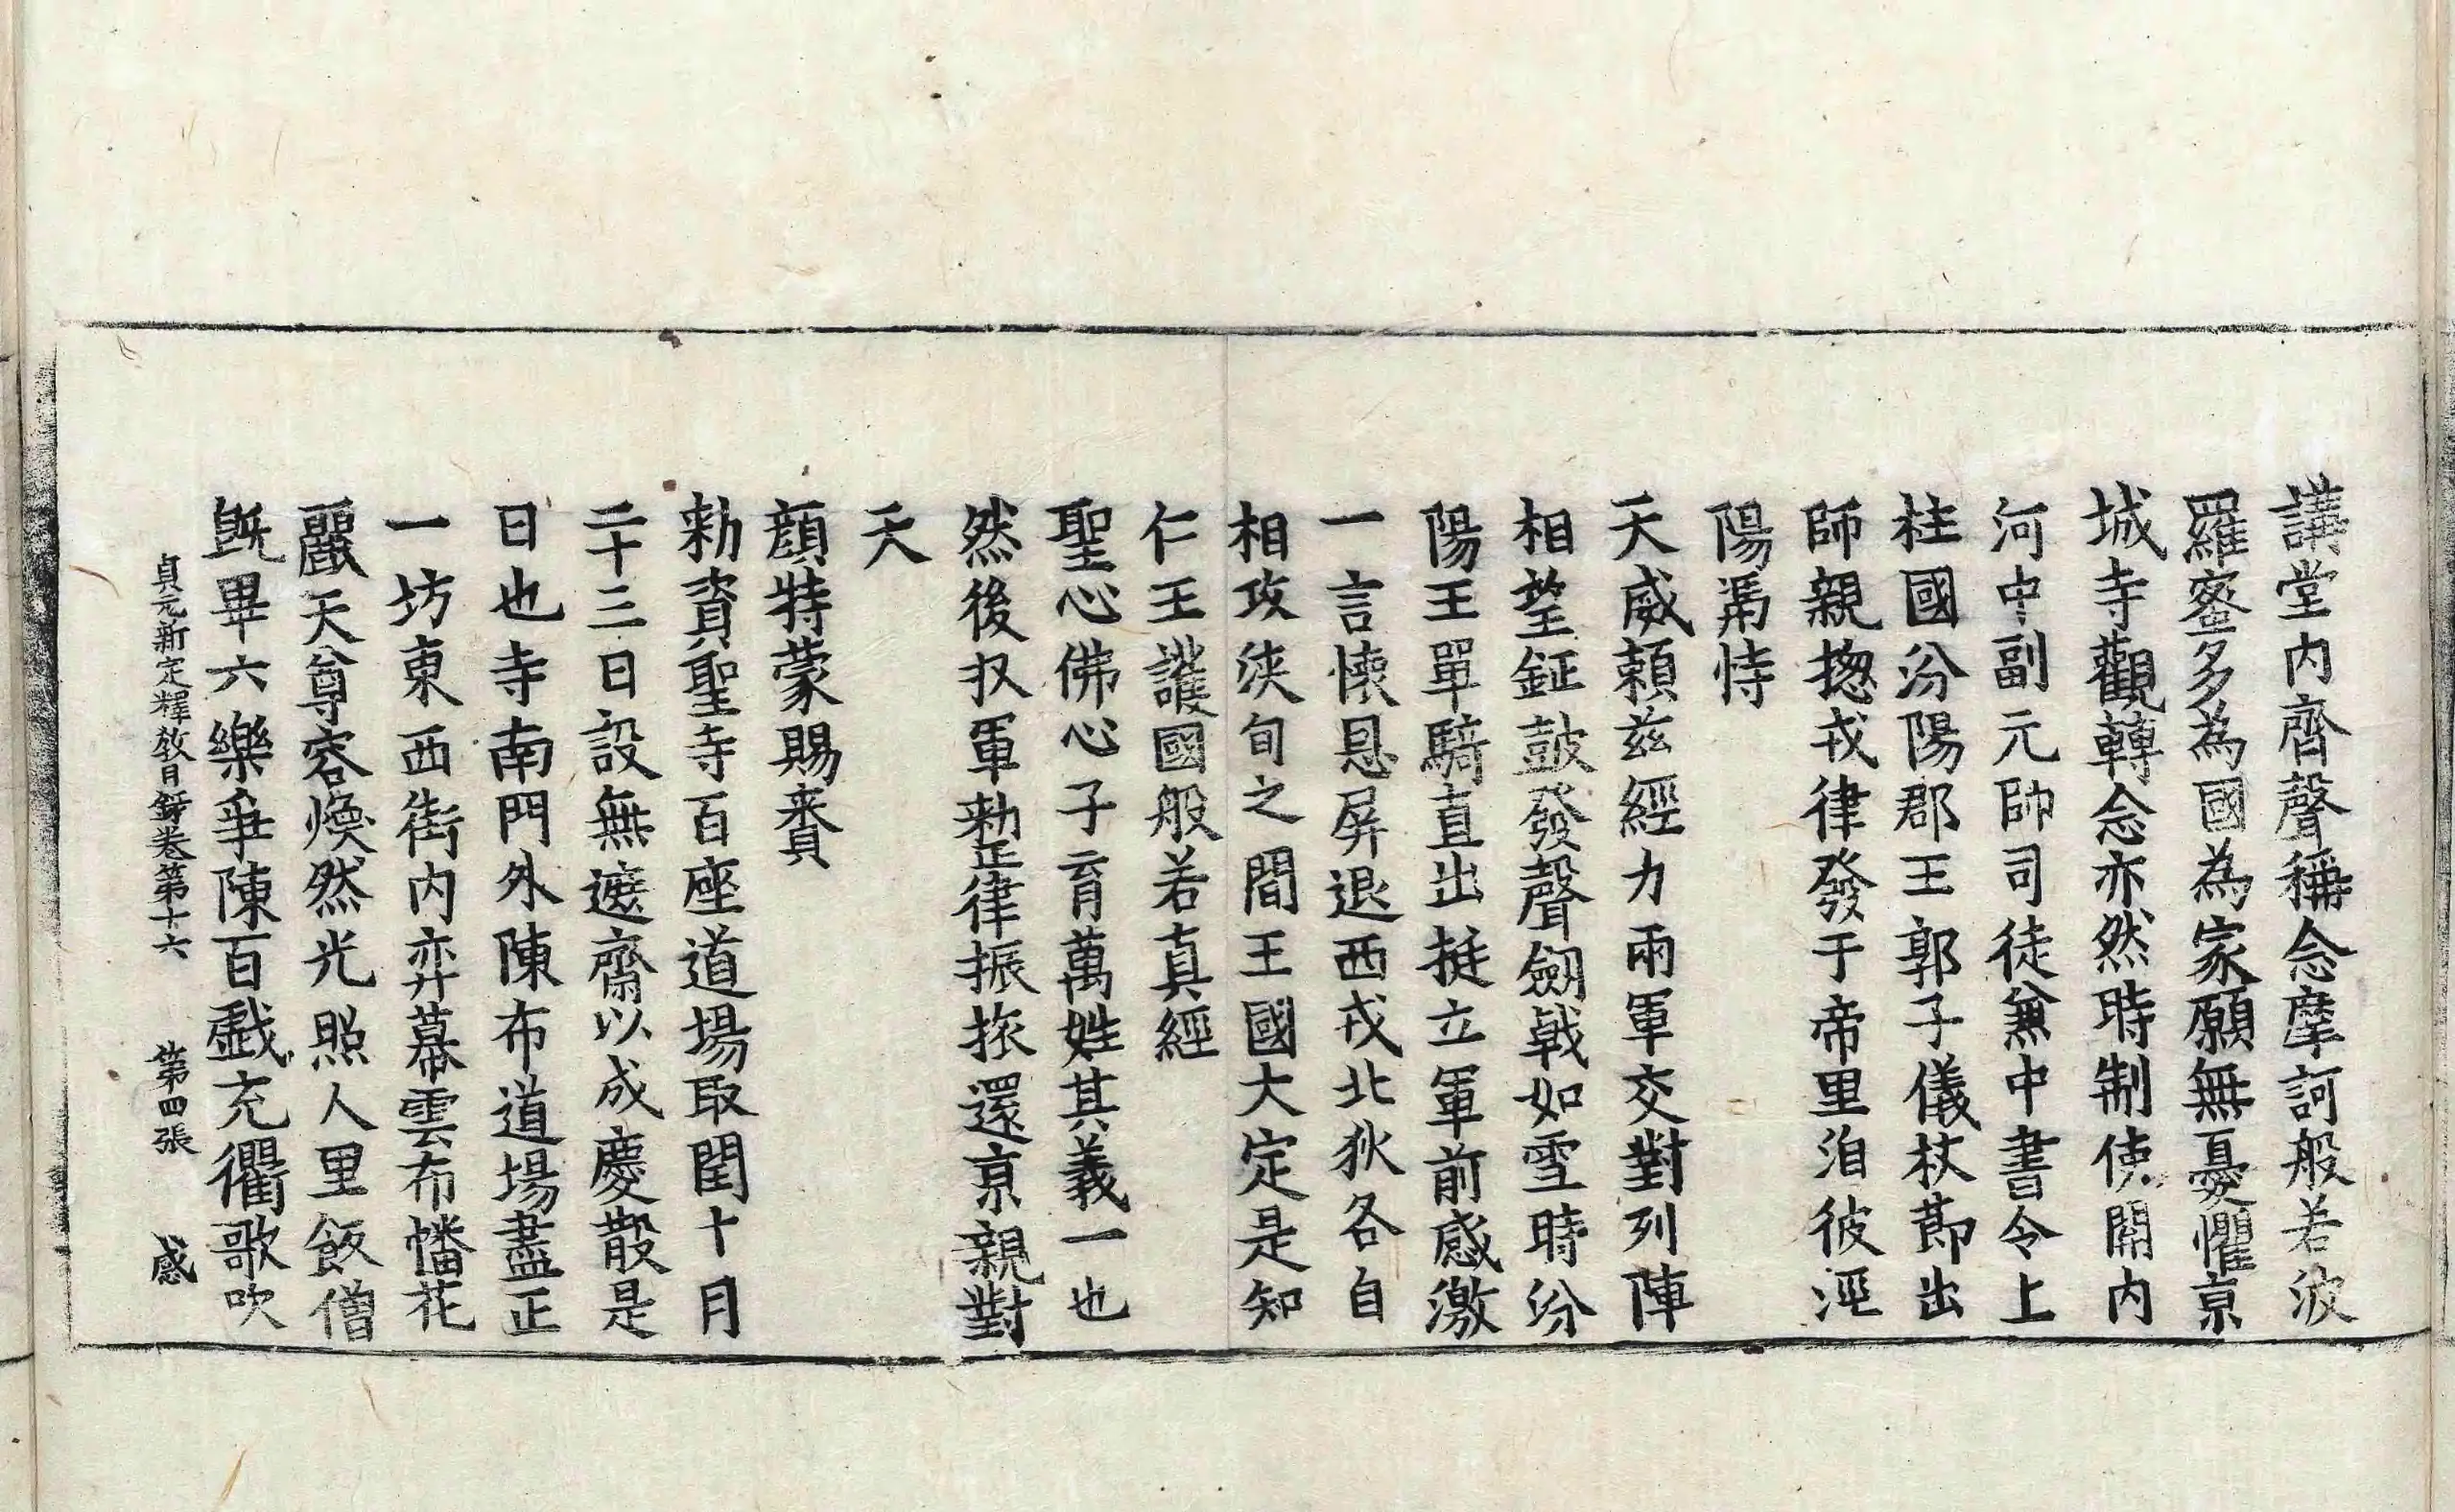 講堂内齊聲稱念摩訶般若波
羅蜜多為國為家願無憂懼京
城寺觀轉念亦然時制使開内
河中副元帥司徒兼中書令上
柱國汾陽郡王郭子儀杖節出
師親揔戎律發于帝里洎彼涇
陽馮恃
天威賴兹經力兩軍交對列陣
相望鉦鼓發聲劒戟如雪時汾
陽王單騎直出挺立軍前感激
一言懷恩屏退西戎北狄各自
相攻浹旬之間王國大定是知
仁王護國般若真經
聖心佛心子育萬姓其義一也
然後収軍勑正律振旅還京親對
天
顔特蒙賜賚
勑資聖寺百座道場取閏十月
二十三日設無遮齋以成慶散是
日也寺南門外陳布道場盡正
一坊東西街内弈幕雲布幡花
麗天尊容煥然光照人里飯僧
旣畢六樂爭陳百戲充衢歌吹
貞元新定釋教目録卷第十六 第四張 感